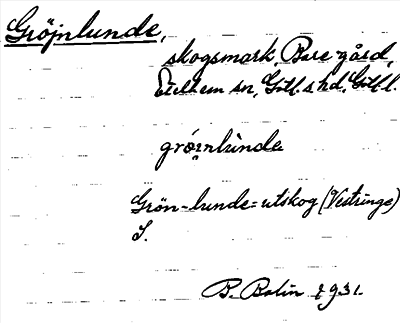 Gröjnlunde,
skogsmark, Bare gård,
Etelhem sn, Gotl. s hd, Gotl. l.
gróinlùnde
Grön-lunde = utskog (Vestringe)
S.
B. Bolin 1931.